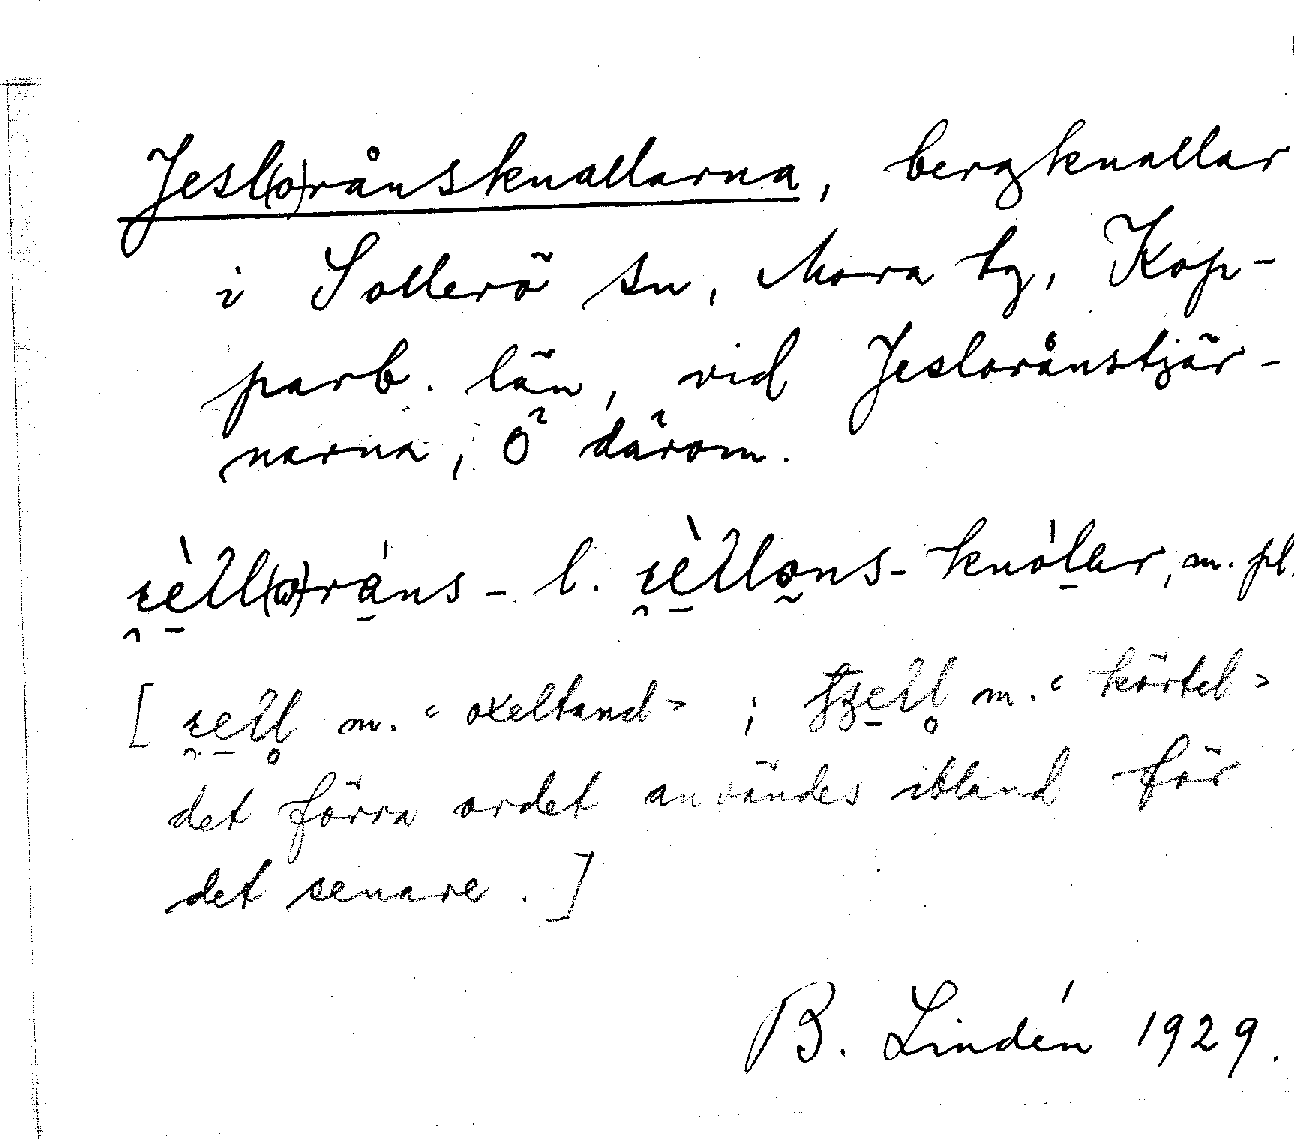 Jesl(o)rånsknallarna, bergknallar
i Sollerö sn, Mora tg, Kop-
parb. län, vid Jesloränstjär-
narna, Ö därom.
l. knólar, m. pl.
[ m. "oxeltand" ; m. "körtel"
det förra ordet användes ibland för
det senare.]
B. Lindén 1929.